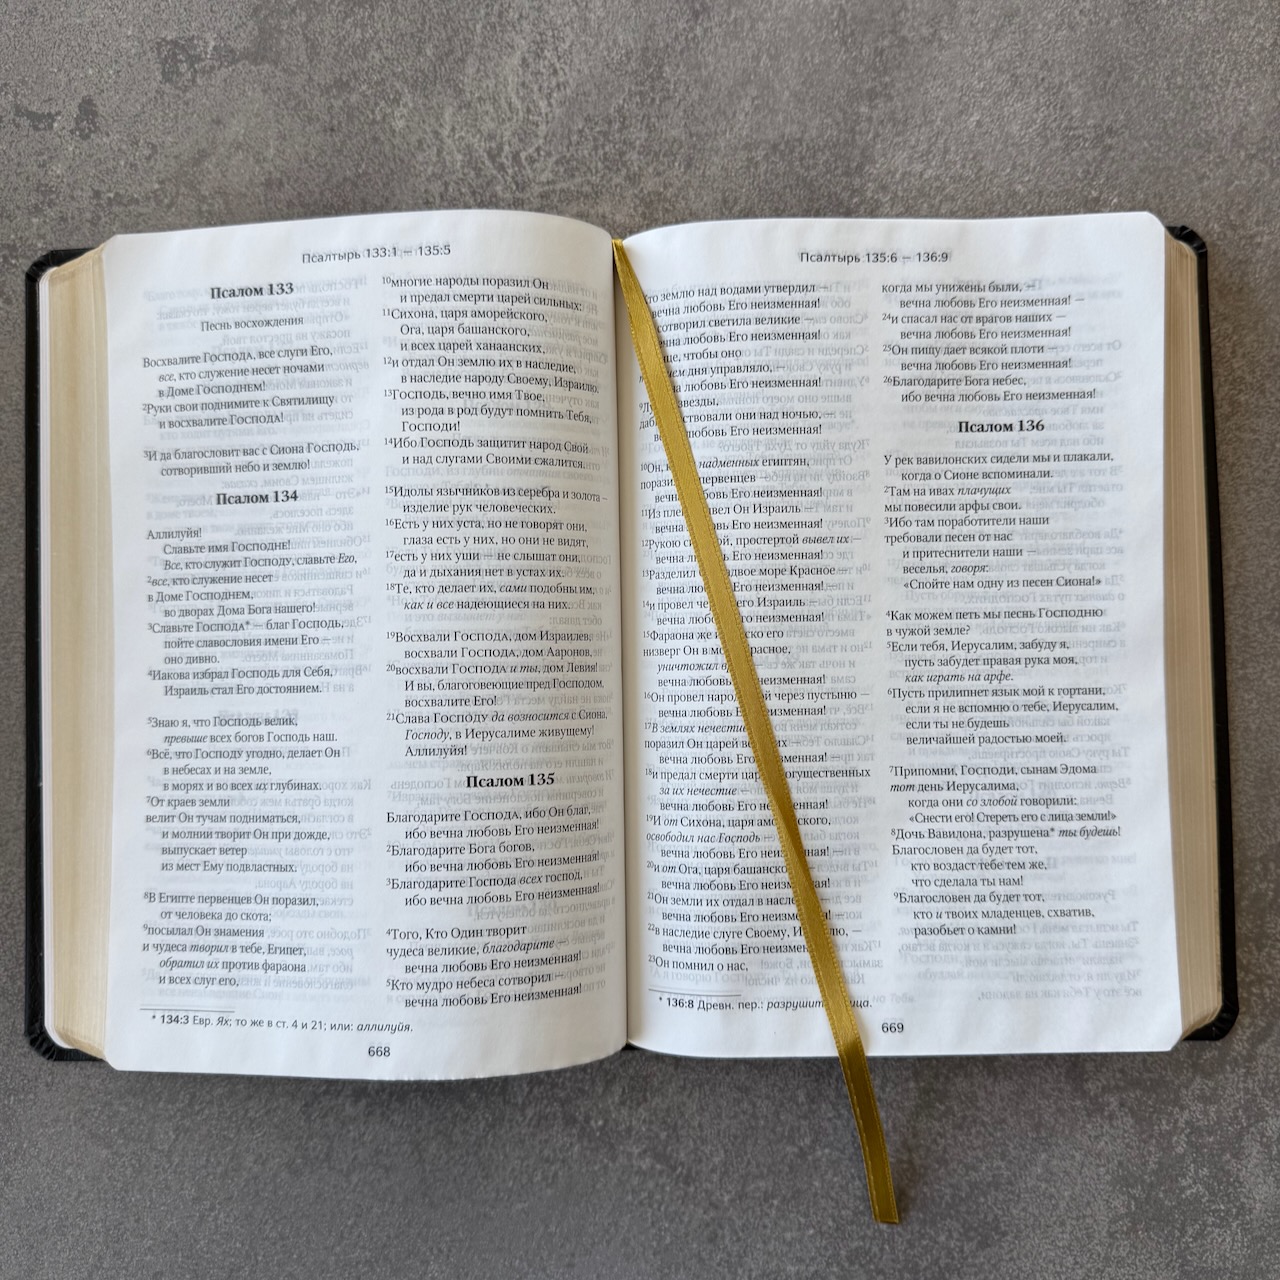 Псалтырь 133:1 — 135:5
Псалом 133
Песнь восхождения
Восхвалите Господа, все слуги Его,
все, кто служение несет ночами
в Доме Господнем!
²Руки свои поднимите к Святилищу
и восхвалите Господа!
³И да благословит вас с Сиона Господь,
сотворивший небо и землю!
Псалом 134
Аллилуйя!
Славьте имя Господне!
Все, кто служит Господу, славьте Его,
²все, кто служение несет
в Доме Господнем,
во дворах Дома Бога нашего!
³Славьте Господа* — благ Господь,
пойте славословия имени Его —
оно дивно.
⁴Иакова избрал Господь для Себя,
Израиль стал Его достоянием.
⁵Знаю я, что Господь велик,
превыше всех богов Господь наш.
⁶Всё, что Господу угодно, делает Он
в небесах и на земле,
в морях и во всех их глубинах.
⁷От краев земли
велит Он тучам подниматься,
и молнии творит Он при дожде,
выпускает ветер
из мест Ему подвластных.
⁸В Египте первенцев Он поразил,
от человека до скота;
⁹посылал Он знамения
и чудеса творил в тебе, Египет,
обратил их против фараона
и всех слуг его,
¹⁰многие народы поразил Он
и предал смерти царей сильных:
¹¹Сихона, царя аморейского,
Ога, царя башанского,
и всех царей ханаанских,
¹²и отдал Он землю их в наследие,
в наследие народу Своему, Израилю.
¹³Господь, вечно имя Твое,
из рода в род будут помнить Тебя,
Господи!
¹⁴Ибо Господь защитит народ Свой
и над слугами Своими сжалится.
¹⁵Идолы язычников из серебра и золота –
изделие рук человеческих.
¹⁶Есть у них уста, но не говорят они,
глаза есть у них, но они не видят,
¹⁷есть у них уши — не слышат они,
да и дыхания нет в устах их.
¹⁸Те, кто делает их, сами подобны им,
как и все надеющиеся на них.
¹⁹Восхвали Господа, дом Израилев,
восхвали Господа, дом Ааронов,
²⁰восхвали Господа и ты, дом Левия!
И вы, благоговеющие пред Господом,
восхвалите Его!
²¹Слава Господу да возносится с Сиона,
Господу, в Иерусалиме живущему!
Аллилуйя!
Псалом 135
Благодарите Господа, ибо Он благ,
ибо вечна любовь Его неизменная!
²Благодарите Бога богов,
ибо вечна любовь Его неизменная!
³Благодарите Господа всех господ,
ибо вечна любовь Его неизменная!
⁴Того, Кто Один творит
чудеса великие, благодарите —
вечна любовь Его неизменная!
⁵Кто мудро небеса сотворил —
вечна любовь Его неизменная!
* 134:3 Евр. Ях; то же в ст. 4 и 21; или: аллилуйя.
668
Псалтырь 135:6 — 136:9
землю над водами утвердил —
вечна любовь Его неизменная!
сотворил светила великие —
любовь Его неизменная!
чтобы оно
дня управляло, —
любовь Его неизменная!
звезды,
они над ночью, —
любовь Его неизменная!
¹⁰Он, надменных египтян,
первенцев —
любовь Его неизменная!
¹¹Из Он Израиль —
вечна любовь Его неизменная!
¹²Рукою простертой вывел их —
вечна Его неизменная!
¹³Разделил море Красное —
вечна Его неизменная!
¹⁴и провел Израиль —
вечна любовь Его неизменная!
¹⁵Фараона же его
низверг Он в море
уничтожил
вечна любовь неизменная!
¹⁶Он провел народ через пустыню —
вечна любовь неизменная!
¹⁷В землях
поразил Он царей —
вечна любовь Его
¹⁸и предал смерти могущественных
за их нечестие —
вечна любовь Его неизменная!
¹⁹И от Сихона, царя
освободил нас Господь —
вечна любовь Его неизменная!
²⁰и от Ога, царя башанского
вечна любовь Его
²¹Он земли их отдал в
вечна любовь Его
²²в наследие слуге Своему, —
вечна любовь Его
²³Он помнил о нас,
когда мы унижены были, —
вечна любовь Его неизменная! —
²⁴и спасал нас от врагов наших —
вечна любовь Его неизменная!
²⁵Он пищу дает всякой плоти —
вечна любовь Его неизменная!
²⁶Благодарите Бога небес,
ибо вечна любовь Его неизменная!
Псалом 136
У рек вавилонских сидели мы и плакали,
когда о Сионе вспоминали.
²Там на ивах плачущих
мы повесили арфы свои.
³Ибо там поработители наши
требовали песен от нас
и притеснители наши —
веселья, говоря:
«Спойте нам одну из песен Сиона!»
⁴Как можем петь мы песнь Господню
в чужой земле?
⁵Если тебя, Иерусалим, забуду я,
пусть забудет правая рука моя,
как играть на арфе.
⁶Пусть прилипнет язык мой к гортани,
если я не вспомню о тебе, Иерусалим,
если ты не будешь
величайшей радостью моей.
⁷Припомни, Господи, сынам Эдома
тот день Иерусалима,
когда они со злобой говорили:
«Снести его! Стереть его с лица земли!»
⁸Дочь Вавилона, разрушена* ты будешь!
Благословен да будет тот,
кто воздаст тебе тем же,
что сделала ты нам!
⁹Благословен да будет тот,
кто и твоих младенцев, схватив,
разобьет о камни!
* 136:8 Древн. пер.:
669